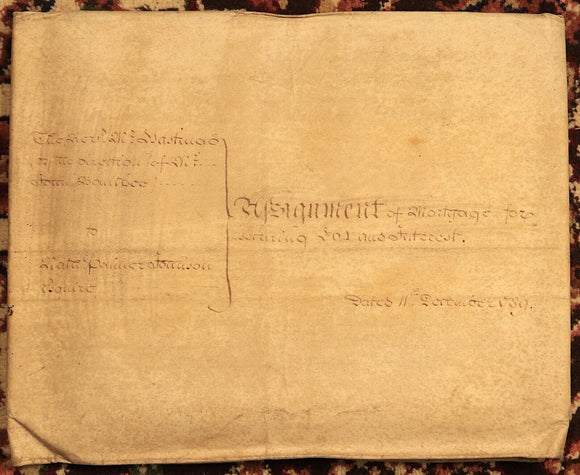 The Rev.d Mr. Hastings
by the direction of Mr.
John Boultbee
to
Nath.l Palmer Johnson
Esquire
Assignment of Mortgage for
securing £91 and Interest.
Dated 11th December 1789.